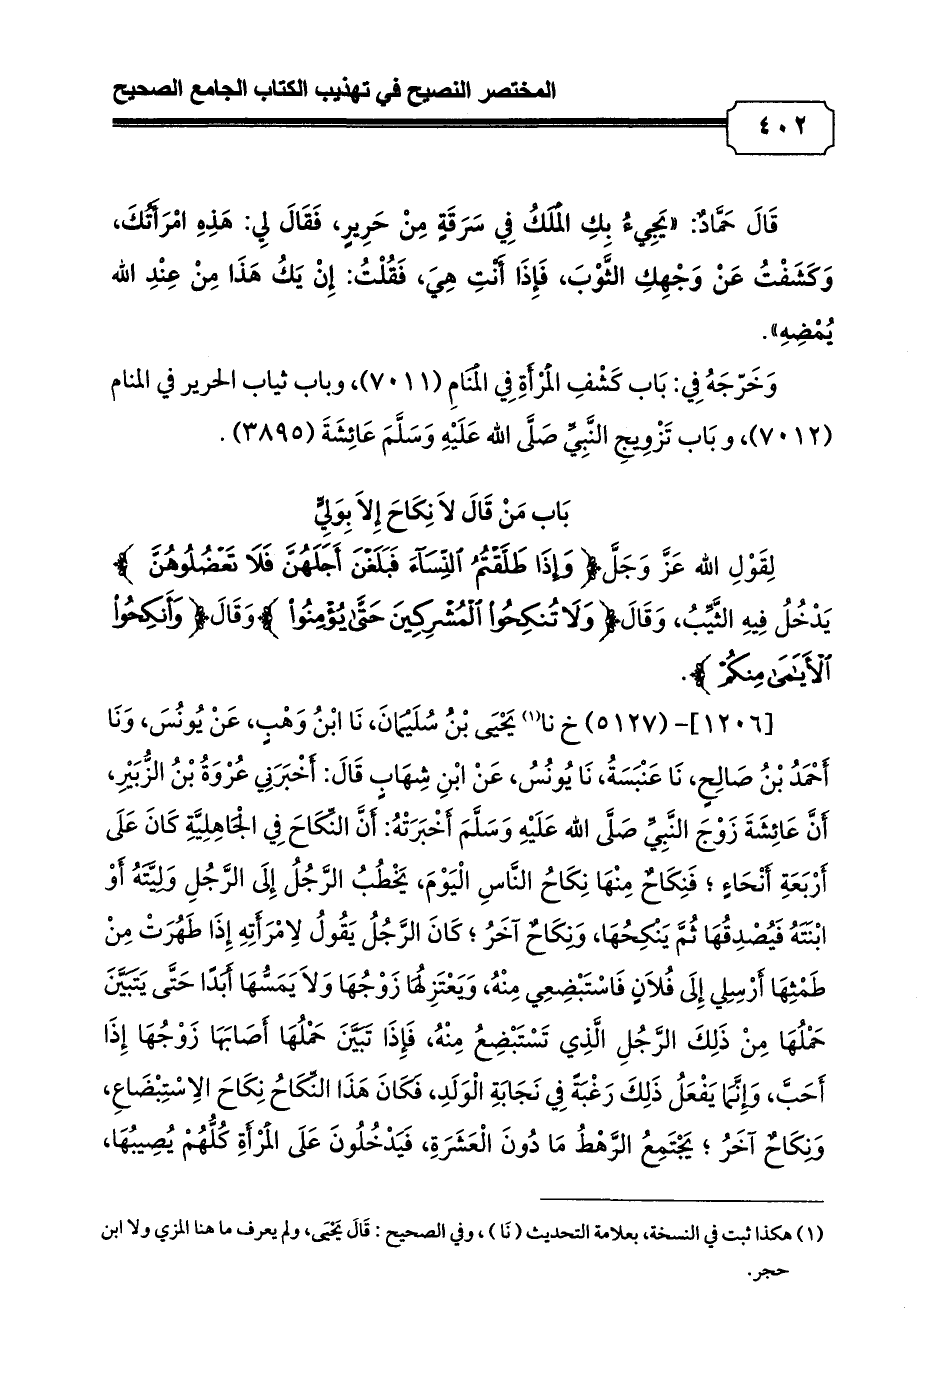 المختصر النصيح في تهذيب الكتاب الجامع الصحيح
٤٠٢
قَالَ حَمَّادٌ: «يَجِيءُ بِكِ الْمَلَكُ فِي سَرَقَةٍ مِنْ حَرِيرٍ، فَقَالَ لِي: هَذِهِ امْرَأَتُكَ،
وَكَشَفْتُ عَنْ وَجْهِكِ الثَّوْبَ، فَإِذَا أَنْتِ هِيَ، فَقُلْتُ: إِنْ يَكُ هَذَا مِنْ عِنْدِ الله
يُمْضِهِ».
وَخَرَّجَهُ فِي: بَاب كَشْفِ الْمَرْأَةِ فِي الْمَنَامِ (٧٠١١)، وباب ثياب الحرير في المنام
(٧٠١٢)، و بَاب تَزْوِيجِ النَّبِيِّ صَلَّى الله عَلَيْهِ وَسَلَّمَ عَائِشَةَ (٣٨٩٥) .
بَاب مَنْ قَالَ لاَ نِكَاحَ إِلاَ بِوَلِيٍّ
لِقَوْلِ الله عَزَّ وَجَلَّ ﴿ وَإِذَا طَلَّقْتُمُ ٱلنِّسَآءَ فَبَلَغْنَ أَجَلَهُنَّ فَلَا تَعْضُلُوهُنَّ ﴾
يَدْخُلُ فِيهِ الثَّيِّبُ، وَقَالَ ﴿ وَلَا تُنكِحُوا۟ ٱلْمُشْرِكِينَ حَتَّىٰ يُؤْمِنُوا۟ ﴾ وَقَالَ ﴿ وَأَنكِحُوا۟
ٱلْأَيَـٰمَىٰ مِنكُمْ ﴾.
[١٢٠٦]- (٥١٢٧) خ نا(١) يَحْيَى بْنُ سُلَيْمَانَ، نَا ابْنُ وَهْبٍ، عَنْ يُونُسَ، وَنَا
أَحْمَدُ بْنُ صَالِحٍ، نَا عَنْبَسَةُ، نَا يُونُسُ، عَنْ ابْنِ شِهَابٍ قَالَ: أَخْبَرَنِي عُرْوَةُ بْنُ الزُّبَيْرِ،
أَنَّ عَائِشَةَ زَوْجَ النَّبِيِّ صَلَّى الله عَلَيْهِ وَسَلَّمَ أَخْبَرَتْهُ: أَنَّ النِّكَاحَ فِي الْجَاهِلِيَّةِ كَانَ عَلَى
أَرْبَعَةِ أَنْحَاءٍ ؛ فَنِكَاحٌ مِنْهَا نِكَاحُ النَّاسِ الْيَوْمَ، يَخْطُبُ الرَّجُلُ إِلَى الرَّجُلِ وَلِيَّتَهُ أَوْ
ابْنَتَهُ فَيُصْدِقُهَا ثُمَّ يَنْكِحُهَا، وَنِكَاحٌ آخَرُ ؛ كَانَ الرَّجُلُ يَقُولُ لِامْرَأَتِهِ إِذَا طَهُرَتْ مِنْ
طَمْثِهَا أَرْسِلِي إِلَى فُلاَنٍ فَاسْتَبْضِعِي مِنْهُ، وَيَعْتَزِلُهَا زَوْجُهَا وَلاَ يَمَسُّهَا أَبَدًا حَتَّى يَتَبَيَّنَ
حَمْلُهَا مِنْ ذَلِكَ الرَّجُلِ الَّذِي تَسْتَبْضِعُ مِنْهُ، فَإِذَا تَبَيَّنَ حَمْلُهَا أَصَابَهَا زَوْجُهَا إِذَا
أَحَبَّ، وَإِنَّمَا يَفْعَلُ ذَلِكَ رَغْبَةً فِي نَجَابَةِ الْوَلَدِ، فَكَانَ هَذَا النِّكَاحُ نِكَاحَ الِاسْتِبْضَاعِ،
وَنِكَاحٌ آخَرُ ؛ يَجْتَمِعُ الرَّهْطُ مَا دُونَ الْعَشَرَةِ، فَيَدْخُلُونَ عَلَى الْمَرْأَةِ كُلُّهُمْ يُصِيبُهَا،
(١) هكذا ثبت في النسخة، بعلامة التحديث (نَا) ، وفي الصحيح : قَالَ يَحْيَى، ولم يعرف ما هنا المزي ولا ابن
حجر.